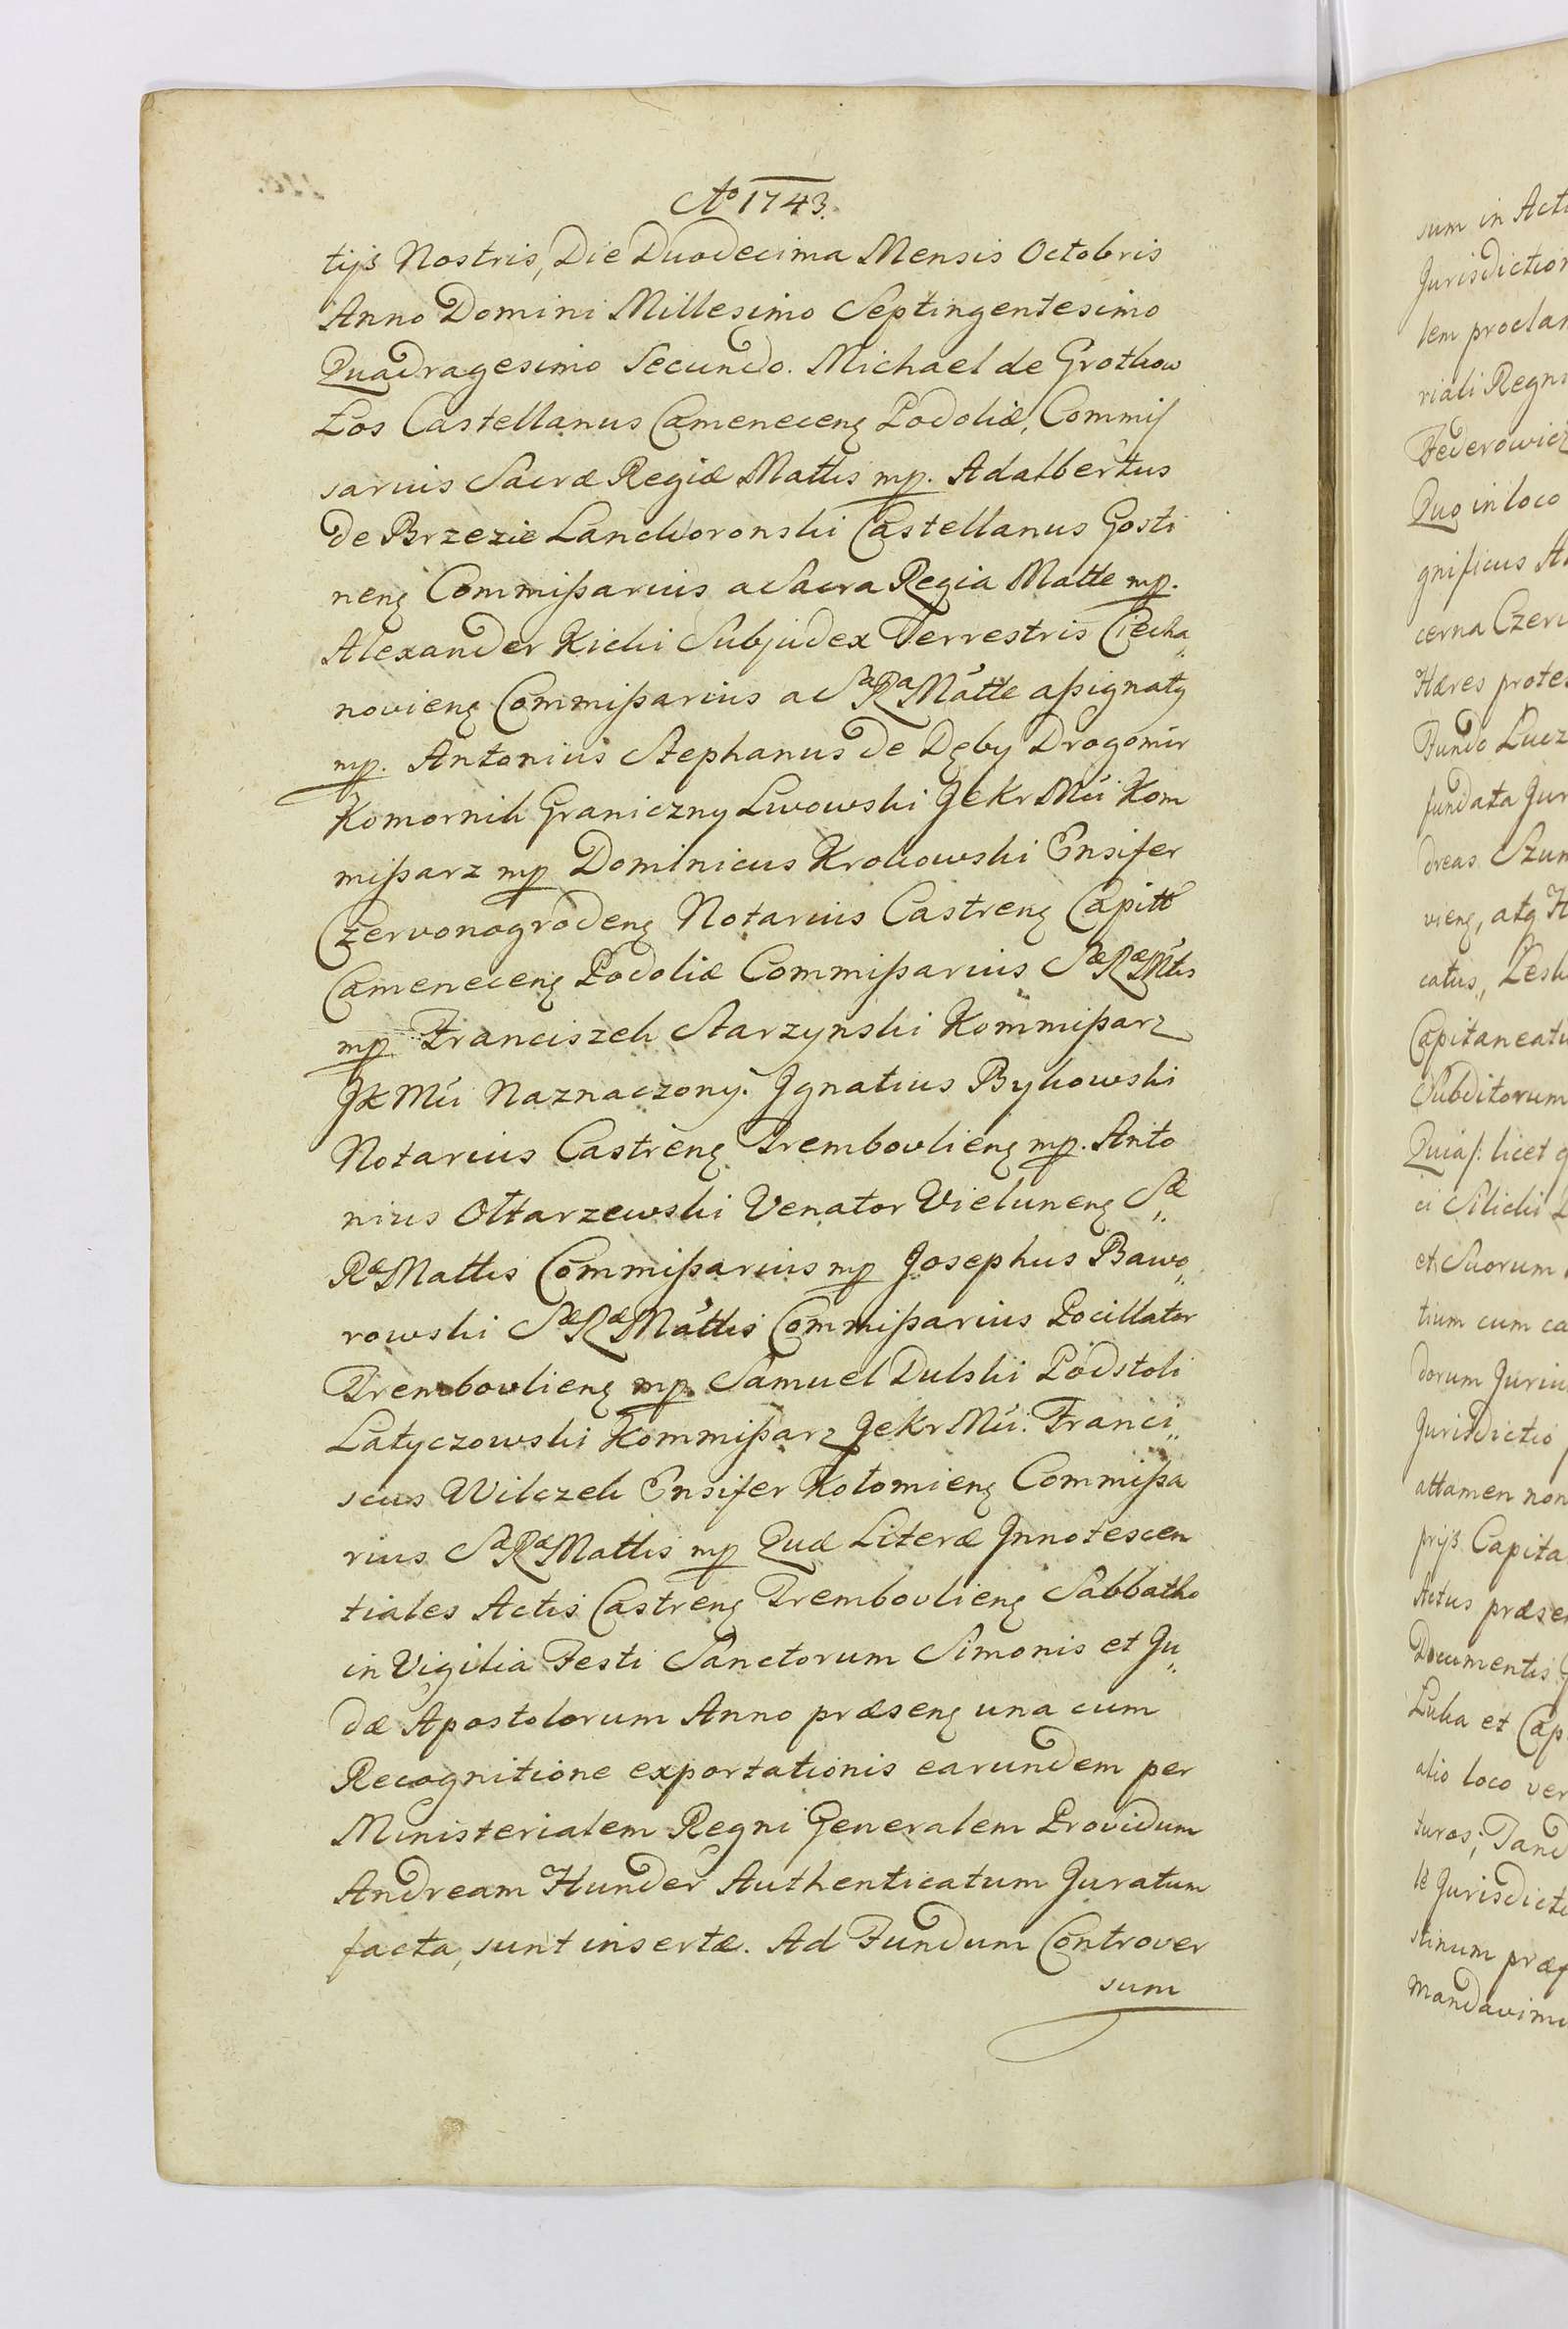 Aō 1743.
tijs Nostris, Die Duodecima Mensis Octobris
Anno Domini Millesimo Septingentesimo
Quadragesimo Secundo. Michael de Grotkow
Łos Castellanus Cameneceng Podoliæ, Commis
sarius Sacræ Regiæ Mattis mp. Adalbertus
de Brzezie Lanckoronski Castellanus Gosti
neng Commißarius a Sacra Regia Matte mp.
Alexander Kicki Subjudex Terrestris Ciecha„
novieng Commißarius a Sa Ra Matte aßignatg
mp. Antonius Stephanus de Dęby Drogomir
Komornik Graniczny Lwowski JeKr Mći Kom
mißarz mp Dominicus Krokowski Ensifer
Czervonogrodeng Notarius Castreng Capitt
Cameneceng Podoliæ Commißarius Sæ Ræ Mtis
mp Franciszek Starzynski Kommißarz
JK Mći Naznaczony. Ignatius Bykowski
Notarius Castreng Trembovlieng mp. Anto
nius Ottarzewski Venator Vieluneng Sæ„
Ræ Mattis Commißarius mp Josephus Bawo„
rowski Sæ Ræ Mattis Commißarius Pocillator
Trembovlieng mp. Samuel Dulski Podstoli
Latyczowski Kommißarz JeKr Mći. Franci„
scus Wilczek Ensifer Kołomieng Commißa
rius Sæ Ræ Mattis mp Quæ Literæ Innotescen
tiales Actis Castreng Trembovlieng Sabbatho
in Vigilia Festi Sanctorum Simonis et Ju„
dæ Apostolorum Anno præseng una cum
Recognitione exportationis earundem per
Ministerialem Regni Generalem Providum
Andream Hunder Authenticatum Juratum
facta, sunt insertæ. Ad Fundum Controver
sum
sum in Act
Jurisdiction
lem proclam
riali Regni
Federowicz
Quo in loco
gnificus A
cerna Czer
Hæres prote
Fundo Lucz
fundata Jur
dreas Szum
vieng, atg H
catus, Lesk
Capitaneatu
Subditorum
Quia/: licet
ci Silicki
et Suorum
tium cum ca
dorum Juriu
Jurisdictio
attamen non
prijs Capita
Actus præse
Documentis
Luka et Cap
alio loco ver
turos; Tand
le Jurisdict
stinum præf
mandavim